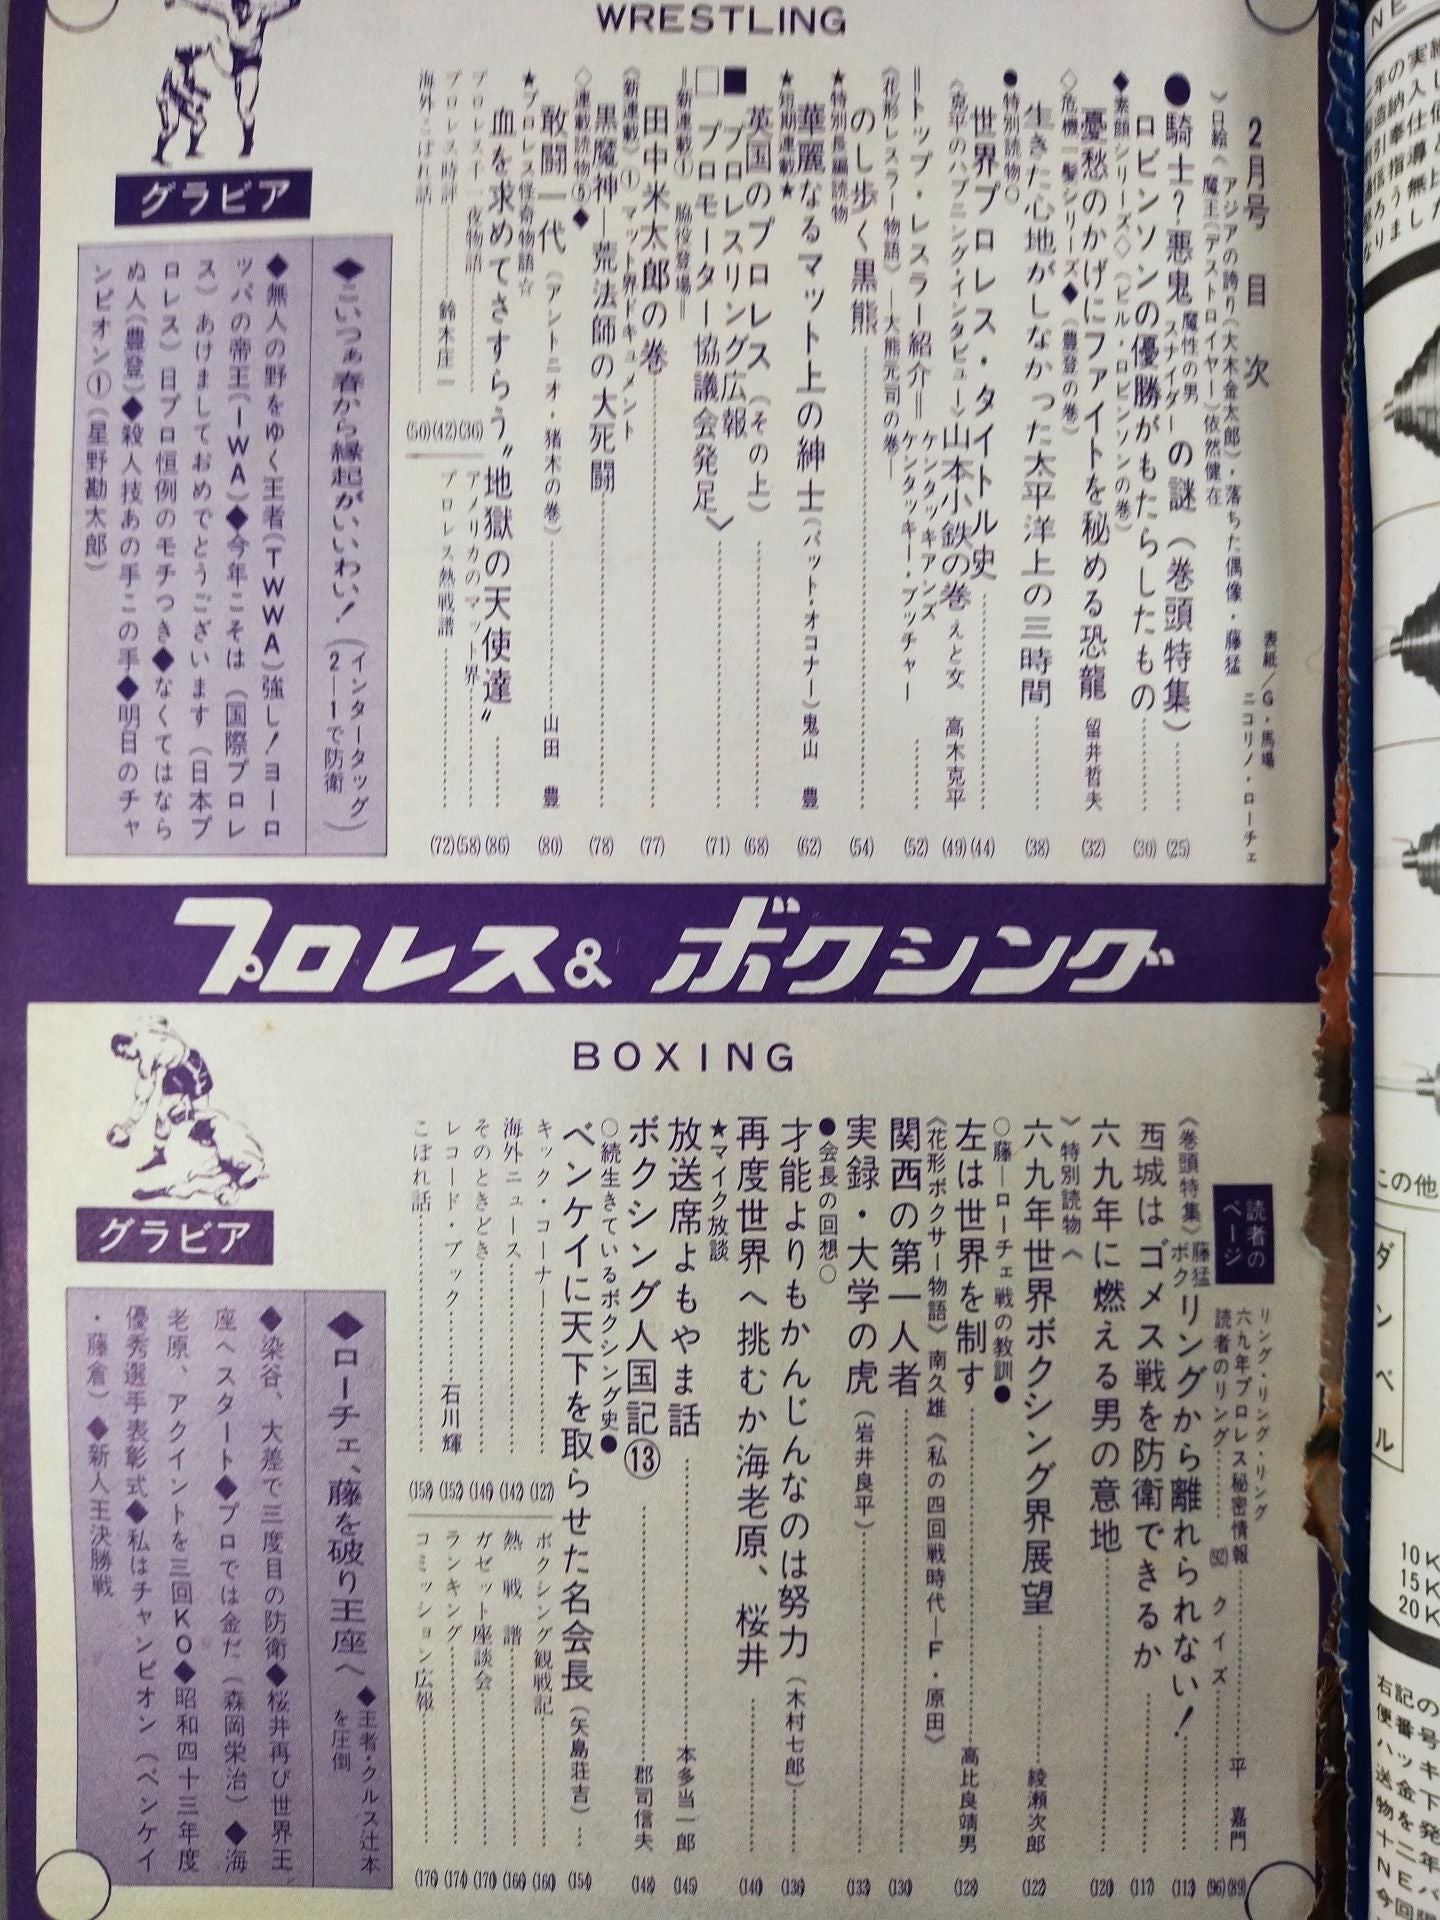 WRESTLING
2月号 目次
表紙/G・馬場
ニコリノ・ローチェ
口絵《アジアの誇り(大木金太郎)・落ちた偶像・藤猛
魔王(デストロイヤー)依然健在
●騎士?悪鬼 魔性の男スナイダーの謎(巻頭特集)……(25)
ロビンソンの優勝がもたらしたもの……(30)
◆素顔シリーズ◇(ビル・ロビンソンの巻)
憂愁のかげにファイトを秘める恐龍 留井哲夫 (32)
◇危機一髪シリーズ◆(豊登の巻)
生きた心地がしなかった太平洋上の三時間……(38)
●特別読物○
世界プロレス・タイトル史……(44)
《克平のハプニング・インタビュー》山本小鉄の巻 えと文 高木克平 (49)
=トップ・レスラー紹介= ケンタッキアンズ
ケンタッキー・ブッチャー……(52)
《花形レスラー物語》—大熊元司の巻—
のし歩く黒熊……(54)
★特別長編読物
華麗なるマット上の紳士(パット・オコナー)鬼山 豊 (62)
★短期連載★
英国のプロレス(その上)……(68)
■プロレスリング広報
□プロモーター協議会発足〉……(71)
=新連載①脇役登場=
田中米太郎の巻……(77)
《新連載》①マット界ドキュメント
黒魔神—荒法師の大死闘……(78)
◇連載読物⑤◆
敢闘一代(アントニオ・猪木の巻)……山田 豊 (80)
★プロレス怪奇物語☆
血を求めてさすらう〝地獄の天使達〟……(86)
プロレス千一夜物語……(36)
プロレス時評……鈴木庄一 (42)
海外こぼれ話……(50)
アメリカのマット界……(58)
プロレス熱戦譜……(72)
グラビア
◆こいつぁ春から縁起がいいわい!(インタータッグ)
2—1で防衛
◆無人の野をゆく王者(TWWA)強し!ヨーロ
ッパの帝王(IWA)◆今年こそは(国際プロレ
ス)あけましておめでとうございます(日本プ
ロレス)日プロ恒例のモチつき◆なくてはなら
ぬ人(豊登)◆殺人技あの手この手◆明日のチャ
ンピオン①(星野勘太郎)
プロレス&ボクシング
BOXING
読者のページ
リング・リング・リング……平 嘉門 (89)
六九年プロレス秘密情報
読者のリング……(92) クイズ……(96)
《巻頭特集》藤猛 ボクリングから離れられない!……(113)
西城はゴメス戦を防衛できるか……(117)
六九年に燃える男の意地……(120)
〉特別読物〈
六九年世界ボクシング界展望……綾瀬次郎 (122)
○藤—ローチェ戦の教訓●
左は世界を制す……高比良靖男 (128)
《花形ボクサー物語》南久雄《私の四回戦時代—F・原田》
関西の第一人者……(130)
実録・大学の虎(岩井良平)……(133)
●会長の回想○
才能よりもかんじんなのは努力(木村七郎)……(136)
再度世界へ挑むか海老原、桜井……(140)
★マイク放談
放送席よもやま話……本多当一郎 (145)
ボクシング人国記⑬……郡司信夫 (148)
○続生きているボクシング史●
ベンケイに天下を取らせた名会長(矢島荘吉)……(154)
キック・コーナー……(127)
海外ニュース……(142)
そのときどき……(146)
レコード・ブック……石川輝 (152)
こぼれ話……(158)
ボクシング観戦記……(160)
熱戦譜……(166)
ガゼット座談会……(170)
ランキング……(174)
コミッション広報……(176)
グラビア
◆ローチェ、藤を破り王座へ ◆王者・クルス辻本
を圧倒
◆染谷、大差で三度目の防衛◆桜井再び世界王
座へスタート◆プロでは金だ(森岡栄治)◆海
老原、アクイントを三回KO◆昭和四十三年度
優秀選手表彰式◆私はチャンピオン(ベンケイ
・藤倉)◆新人王決勝戦
この他
ダンベル
10K
15K
20K